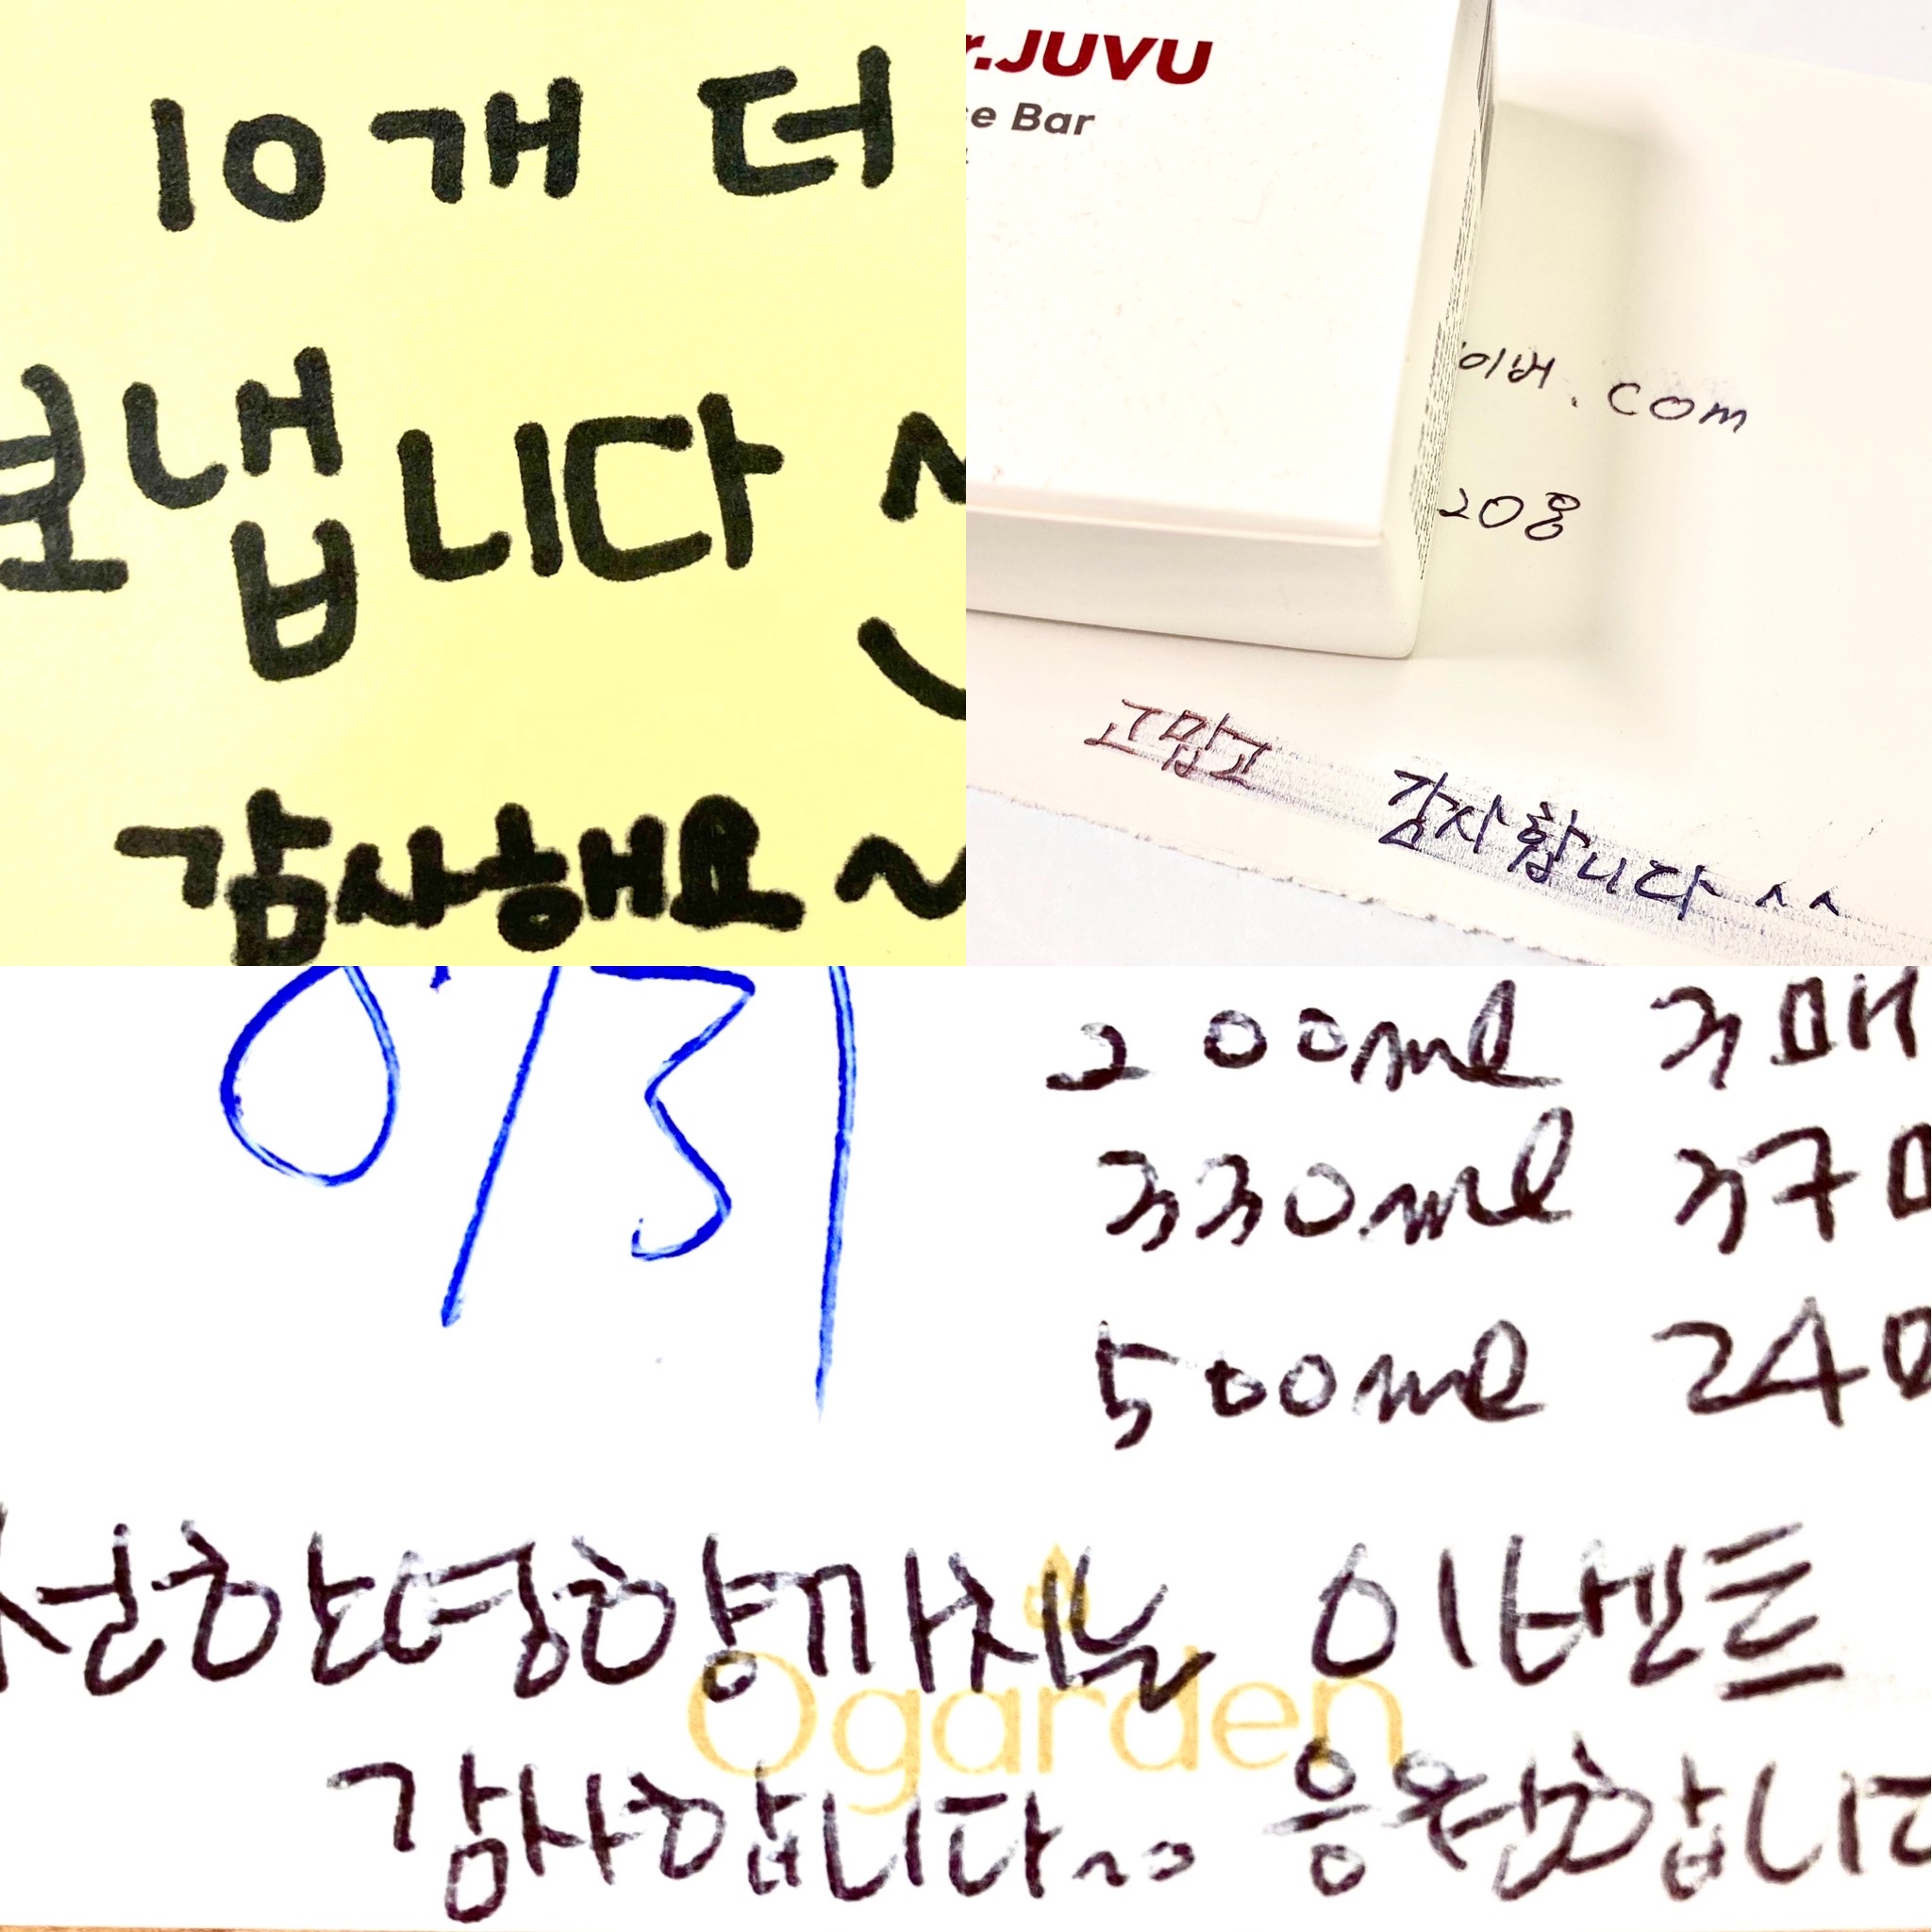 10개 더
보냅니다 ~
감사해요~
r.JUVU
e Bar
이버.com
20용
고맙고 감사합니다 ^^
0/31
200ml 3매
330ml 37매
500ml 24매
선한영향끼치는 이벤트
Ogarden
감사합니다~ 응원합니다